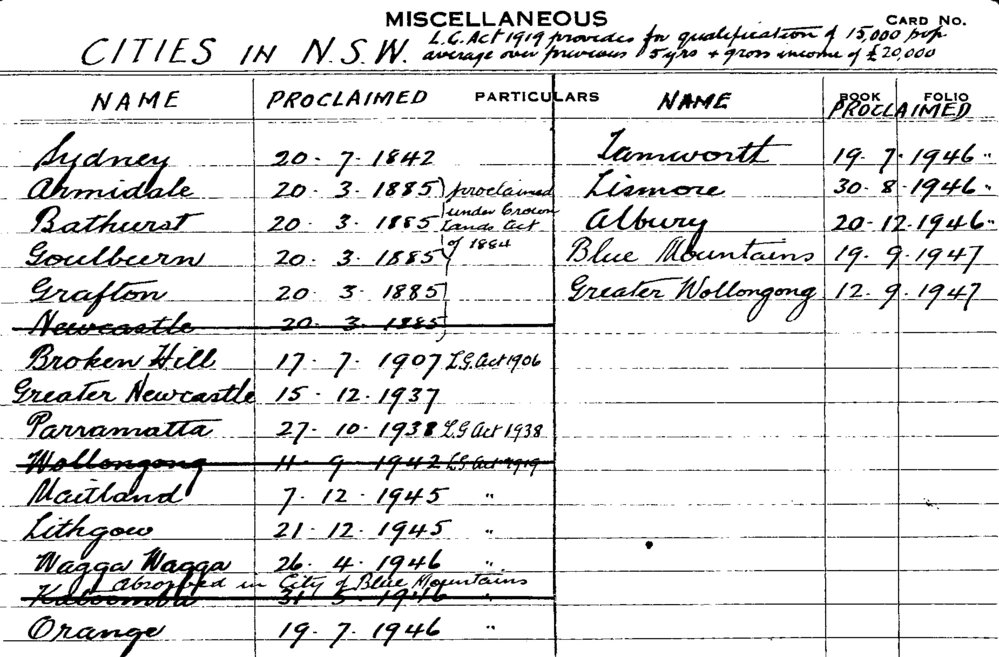 MISCELLANEOUS
CARD No.
CITIES IN N.S.W.
L.G. Act 1919 provides for qualification of 15,000 pop.
average over previous 5 yrs + gross income of £20,000
NAME PROCLAIMED PARTICULARS NAME BOOK FOLIO
PROCLAIMED
Sydney 20. 7. 1842 Tamworth 19. 7. 1946 "
Armidale 20. 3. 1885 proclaimed Lismore 30. 8. 1946 "
Bathurst 20. 3. 1885 under Crown Lands Act Albury 20. 12. 1946 "
Goulburn 20. 3. 1885 of 1884 Blue Mountains 19. 9. 1947
Grafton 20. 3. 1885 Greater Wollongong 12. 9. 1947
Newcastle 20. 3. 1885
Broken Hill 17. 7. 1907 L.G. Act 1906
Greater Newcastle 15. 12. 1937
Parramatta 27. 10. 1938 L.G Act 1938
Wollongong 11. 9. 1942 L.G. Act 1919
Maitland 7. 12. 1945 "
Lithgow 21. 12. 1945 "
Wagga Wagga 26. 4. 1946 "
absorbed in City of Blue Mountains
Katoomba 1946 "
Orange 19. 7. 1946 "